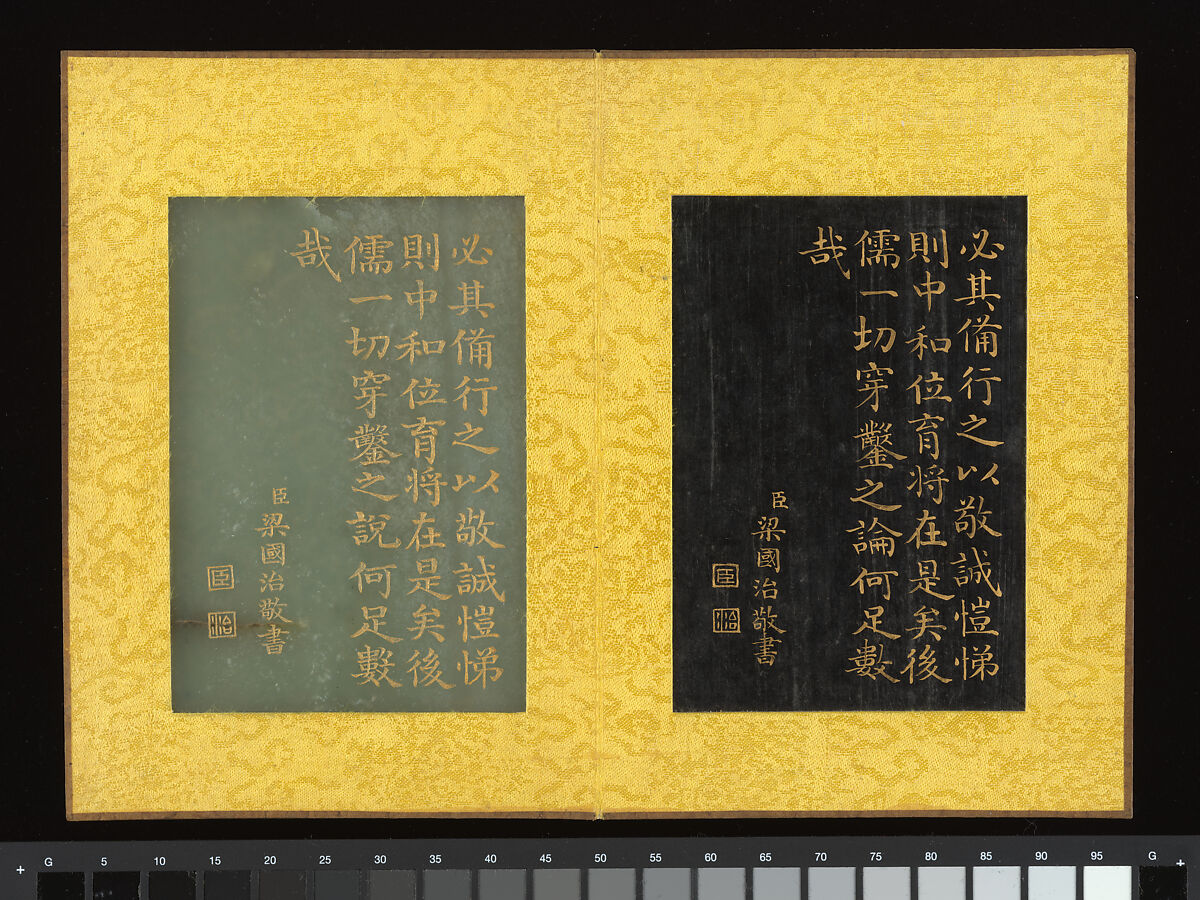 必其備行之以敬誠愷悌
則中和位育将在是矣後
儒一切穿鑿之論何足數
哉
臣梁國治敬書
臣
治
必其備行之以敬誠愷悌
則中和位育将在是矣後
儒一切穿鑿之說何足數
哉
臣梁國治敬書
臣
治
G 5 10 15 20 25 30 35 40 45 50 55 60 65 70 75 80 85 90 95 G